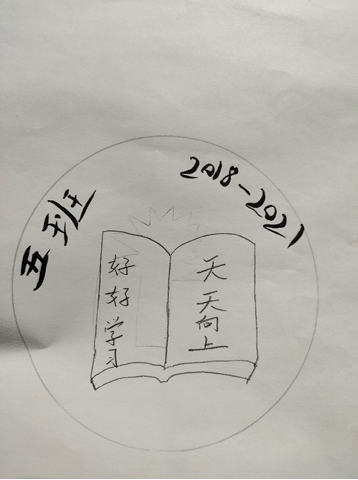 五班
2018-2021
好好学习
天天向上